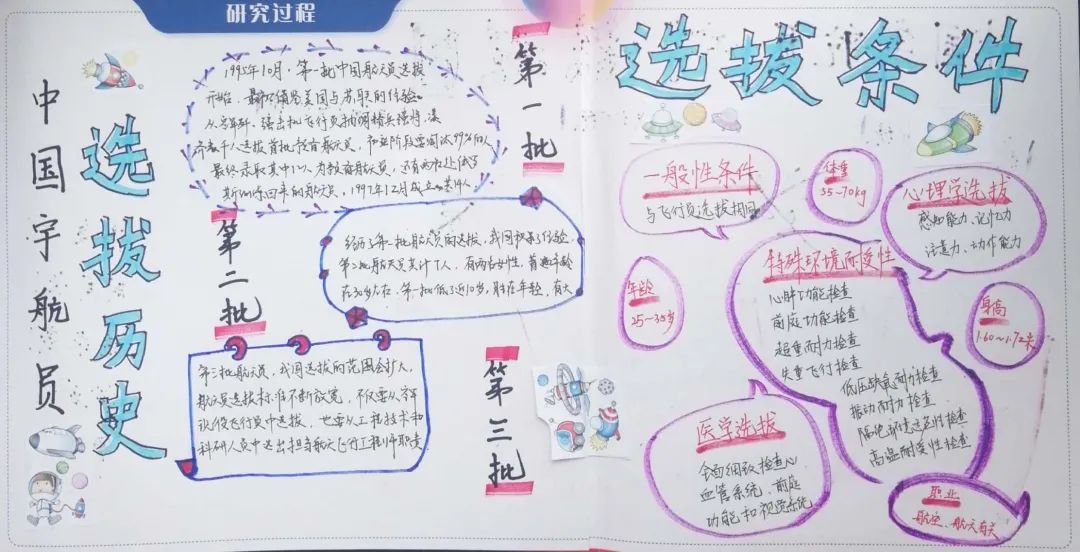 研究过程
中国宇航员
选拔历史
第一批
1995年10月，第一批中国航天员选拔
开始，最初借鉴美国与苏联的经验。
从空军歼、强击机飞行员抽调精兵强将，
千人选拔首批预备航天员，
最终录取其中12人为预备航天员，还有两位
回来的航天员，1997年12月成立 共14人
第二批
经历了第一批航天员的选拔，我国积累了经验
第二批航天员共计7人，有两名女性，普遍年龄
在30岁左右，第一批低了近10岁，胜在年轻，有大
第三批
第三批航天员，我国选拔的范围会扩大，
航天员选拔标准不断放宽，不仅要从空军
现役飞行员中选拔，也要从工程技术和
科研人员中选出担当航天飞行工程师职责
选拔条件
一般性条件
与飞行员选拔相同
体重
55-70kg
心理学选拔
感知能力、记忆力
注意力、动作能力
年龄
25-35岁
特殊环境耐受性
心肺功能检查
前庭功能检查
超重耐力检查
失重飞行检查
低压缺氧耐力检查
振动耐力检查
隔绝 检查
高温耐受性检查
身高
1.60~1.72米
医学选拔
全面细致检查心
血管系统、前庭
功能和视觉系统
职业
航空、航天有关